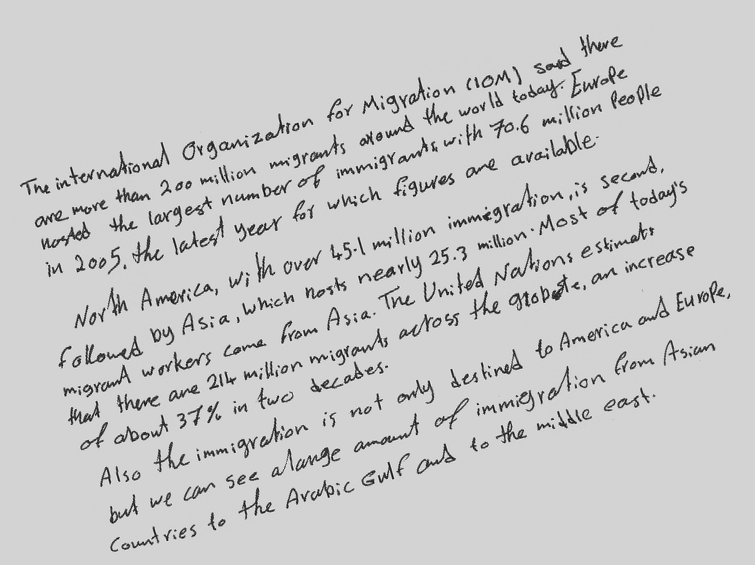 The international Organization for Migration (IOM) said there
are more than 200 million migrants around the world today. Europe
hosted the largest number of immigrants, with 70.6 million People
in 2005, the latest year for which figures are available.
North America, with over 45.1 million immigration, is second,
followed by Asia, which hosts nearly 25.3 million. Most of today's
migrant workers come from Asia. The United Nations estimats
that there are 214 million migrants across the globe, an increase
of about 37% in two decades.
Also the immigration is not only destined to America and Europe,
but we can see a large amount of immigration from Asian
Countries to the Arabic Gulf and to the middle east.